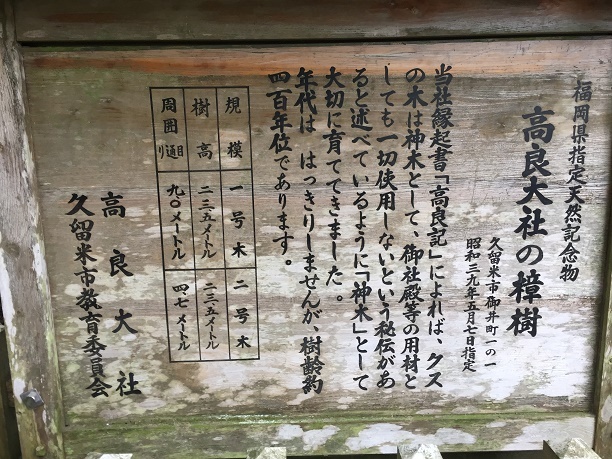 福岡県指定天然記念物
高良大社の樟樹
久留米市御井町一の一
昭和三九年五月七日指定
当社縁起書「高良記」によれば、クス
の木は神木として、御社殿等の用材と
しても一切使用しないという秘伝があ
ると述べているように「神木」として
大切に育ててきました。
年代は はっきりしませんが、樹齢約
四百年位であります。
規模 一号木 二号木
樹高 二三・五メートル 二三・五メートル
周囲目通り 九・〇メートル 四・七メートル
高良大社
久留米市教育委員会